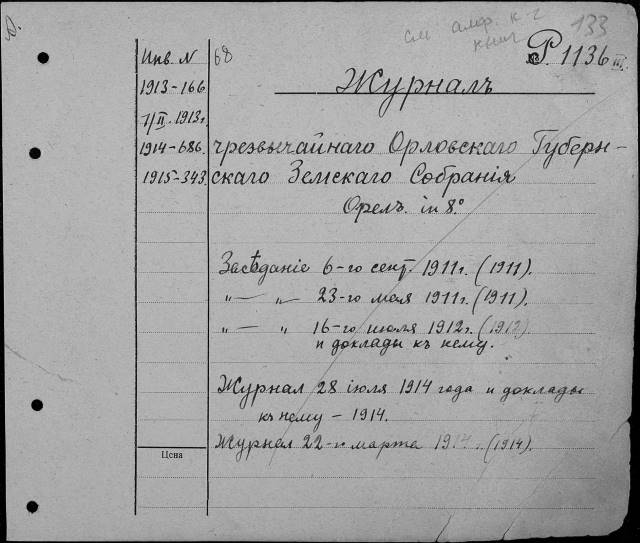 см алф. к-г
книг
133
Инв. N 68
Р. 1136 III.
1913-166
Журналъ
7/II. 1913 г.
1914-686. чрезвычайнаго Орловскаго Губерн-
1915-343. скаго Земскаго Собранія
Орелъ. in 8.º
Засѣданіе 6-го сент. 1911 г. (1911).
„— „— 23-го мая 1911 г. (1911).
„— „ 16-го июля 1912 г. (1912)
и доклады къ нему.
Журнал 28 іюля 1914 года и доклады
къ нему - 1914.
Цена
Журнал 22-го марта 1914 г. (1914).